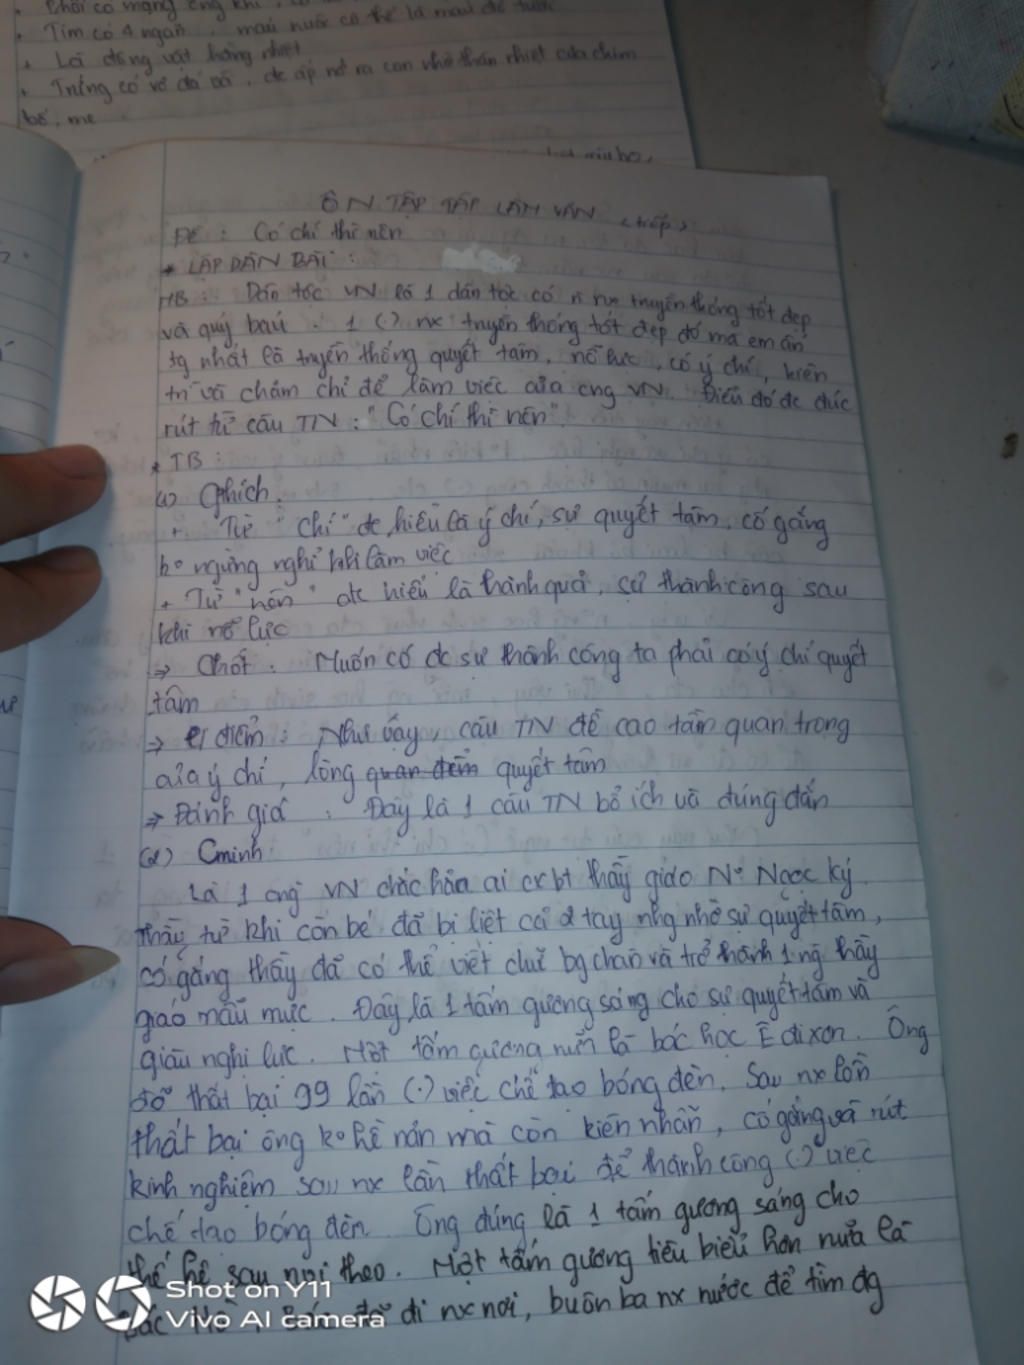 Phổi có mạng ống khí
+ Tim có 4 ngăn, máu nuôi cơ thể là máu đỏ tươi
+ Là động vật hằng nhiệt
+ Trứng có vỏ đá vôi, đc ấp nở ra con nhờ thân nhiệt của chim
bố, mẹ
ÔN TẬP TẬP LÀM VĂN (tiếp)
Đề : Có chí thì nên
* LẬP DÀN BÀI :
MB : Dân tộc VN là 1 dân tộc có nx truyền thống tốt đẹp
và quý báu. 1 (.) nx truyền thống tốt đẹp đó mà em ấn
tg nhất là truyền thống quyết tâm, nỗ lực, có ý chí, kiên
trì và chăm chỉ để làm việc của cng VN. Điều đó đc đúc
rút từ câu TN : "Có chí thì nên".
* TB :
(1) Gthích.
+ Từ "chí" đc hiểu là ý chí, sự quyết tâm, cố gắng
ko ngừng nghỉ khi làm việc
+ Từ "nên" đc hiểu là thành quả, sự thành công sau
khi nỗ lực
→ Chốt : Muốn có đc sự thành công ta phải có ý chí quyết
tâm
→ điểm : Như vậy, câu TN đề cao tầm quan trọng
của ý chí, lòng quan điểm quyết tâm
→ Đánh giá : Đây là 1 câu TN bổ ích và đúng đắn
(2) Cminh
Là 1 cng VN chắc hẳn ai cx bt thầy giáo No Ngọc Ký.
Thầy từ khi còn bé đã bị liệt cả 2 tay nhg nhờ sự quyết tâm,
cố gắng thầy đã có thể viết chữ bg chân và trở thành 1 ng thầy
giáo mẫu mực. Đây là 1 tấm gương sáng cho sự quyết tâm và
giàu nghị lực. Một tấm gương nữa là bác học Ê đixơn. Ông
đã thất bại 99 lần (.) việc chế tạo bóng đèn. Sau nx lần
thất bại ông ko hề nản mà còn kiên nhẫn, cố gắng và rút
kinh nghiệm sau nx lần thất bại để thành công (.) việc
chế tạo bóng đèn. Ông đúng là 1 tấm gương sáng cho
thế hệ sau noi theo. Một tấm gương tiêu biểu hơn nữa là
Bác Hồ. đi nx nơi, buôn ba nx nước để tìm đg
Shot on Y11
Vivo AI camera